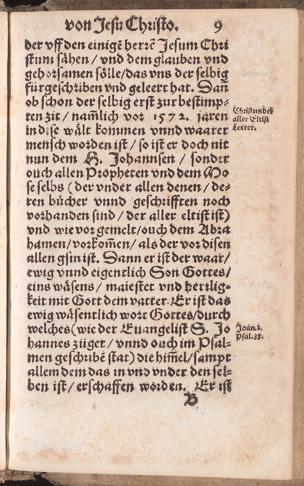 von Jesu Christo. 9
der vff den einigē herrē Jesum Chri
stum sähen / vnd dem glauben vnd
gehorsamen sölle / das vns der selbig
fürgeschriben vnd geleert hat. Dañ
ob schon der selbig erst zur bestimp-
ten zit / nam̃lich vor 1572. jaren
in dise wält kommen vnnd waarer
mensch worden ist / so ist er doch nit
nun dem H. Johannsen / sonder
ouch allen Propheten vnd dem Mo
se selbs (der vnder allen denen / de-
ren bücher vnnd geschrifften noch
vorhanden sind / der aller eltist ist)
vnd wie vor gemelt / ouch dem Abra
hamen / vorkom̃en / als der vor disen
allen gsin ist. Dann er ist der waar /
ewig vnnd eigentlich Son Gottes /
eins wäsens / maiestet vnd herrlig-
keit mit Gott dem vatter. Er ist das
ewig wäsentlich wort Gottes / durch
welches (wie der Euangelist S. Jo
hannes züget / vnnd ouch im Psal-
men geschribē stat) die him̃el / sampt
allem dem das in vnd vnder den sel-
ben ist / erschaffen worden. Er ist
B
Christus der
aller Eltist
Leerer.
Joan. 1.
Psal. 33.